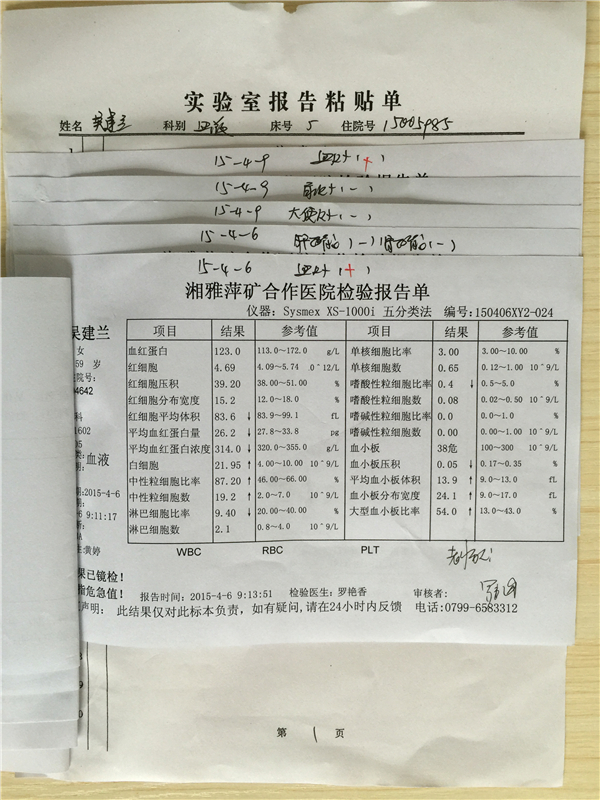 实验室报告粘贴单
姓名 吴建兰 科别 床号 5 住院号 15005985
15-4-9 血R+(+)
15-4-9 尿R+(-)
15-4-9 大便R+(-)
15-4-6 肝功能(-) 肾功能(-)
15-4-6 血R+(+)
湘雅萍矿合作医院检验报告单
仪器: Sysmex XS-1000i 五分类法 编号:150406XY2-024
吴建兰
女
59 岁
院号:
04642
科
1602
05
血液
期:2015-4-6
6 9:11:17
生:黄婷
项目 结果 参考值 项目 结果 参考值
血红蛋白 123.0 113.0~172.0 g/L 单核细胞比率 3.00 3.00~10.00 %
红细胞 4.69 4.09~5.74 0^12/L 单核细胞数 0.65 0.12~1.00 10^9/L
红细胞压积 39.20 38.00~51.00 % 嗜酸性粒细胞比率 0.4 ↓ 0.5~5.0 %
红细胞分布宽度 15.2 12.0~18.0 % 嗜酸性粒细胞数 0.08 0.02~0.50 10^9/L
红细胞平均体积 83.6 ↓ 83.9~99.1 fL 嗜碱性粒细胞比率 0.0 0.0~1.0 %
平均血红蛋白量 26.2 ↓ 27.8~33.8 pg 嗜碱性粒细胞数 0.00 0.00~1.00 10^9/L
平均血红蛋白浓度 314.0 ↓ 320.0~355.0 g/L 血小板 38危 100~300 10^9/L
白细胞 21.95 ↑ 4.00~10.00 10^9/L 血小板压积 0.05 ↓ 0.17~0.35 %
中性粒细胞比率 87.20 ↑ 46.00~66.00 % 平均血小板体积 13.9 ↑ 9.0~13.0 fL
中性粒细胞数 19.2 ↑ 2.0~7.0 10^9/L 血小板分布宽度 24.1 ↑ 9.0~17.0 fL
淋巴细胞比率 9.40 ↓ 20.00~40.00 % 大型血小板比率 54.0 ↑ 13.0~43.0 %
淋巴细胞数 2.1 0.8~4.0 10^9/L
WBC RBC PLT
果已镜检!
危急值!
报告时间:2015-4-6 9:13:51 检验医生: 罗艳香 审核者:
声明: 此结果仅对此标本负责,如有疑问,请在24小时内反馈 电话:0799-6583312
第 1 页